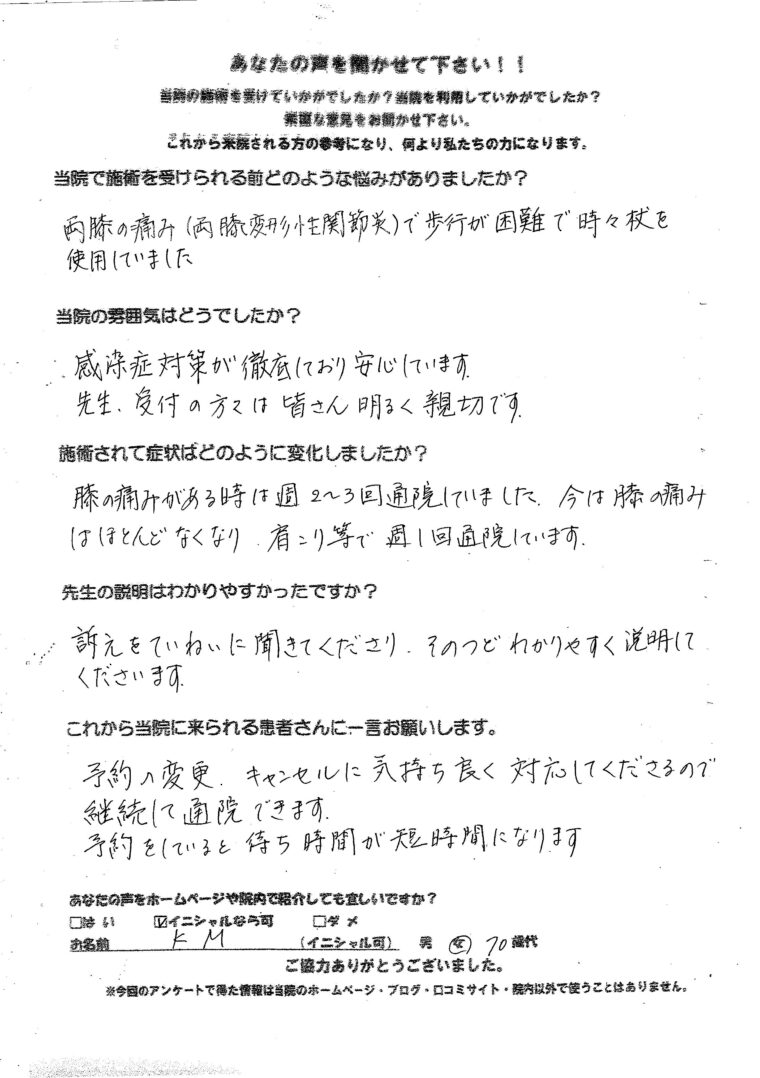 あなたの声を聞かせて下さい！！
当院の施術を受けていかがでしたか？当院を利用していかがでしたか？
率直な意見をお聞かせ下さい。
これから来院される方の参考になり、何より私たちの力になります。
当院で施術を受けられる前どのような悩みがありましたか？
両膝の痛み（両膝変形性関節炎）で歩行が困難で時々杖を
使用していました
当院の雰囲気はどうでしたか？
感染症対策が徹底しており安心しています.
先生、受付の方々は皆さん明るく親切です.
施術されて症状はどのように変化しましたか？
膝の痛みがある時は週2～3回通院していました. 今は膝の痛み
はほとんどなくなり、肩こり等で週1回通院しています.
先生の説明はわかりやすかったですか？
訴えをていねいに聞きてくださり、そのつどわかりやすく説明して
くださいます.
これから当院に来られる患者さんに一言お願いします。
予約の変更、キャンセルに気持ち良く対応してくださるので
継続して通院できます.
予約をしていると待ち時間が短時間になります
あなたの声をホームページや院内で紹介しても宜しいですか？
□はい ☑イニシャルなら可 □ダメ
お名前 K M （イニシャル可） 男 女 70歳代
ご協力ありがとうございました。
※今回のアンケートで得た情報は当院のホームページ・ブログ・口コミサイト・院内以外で使うことはありません。